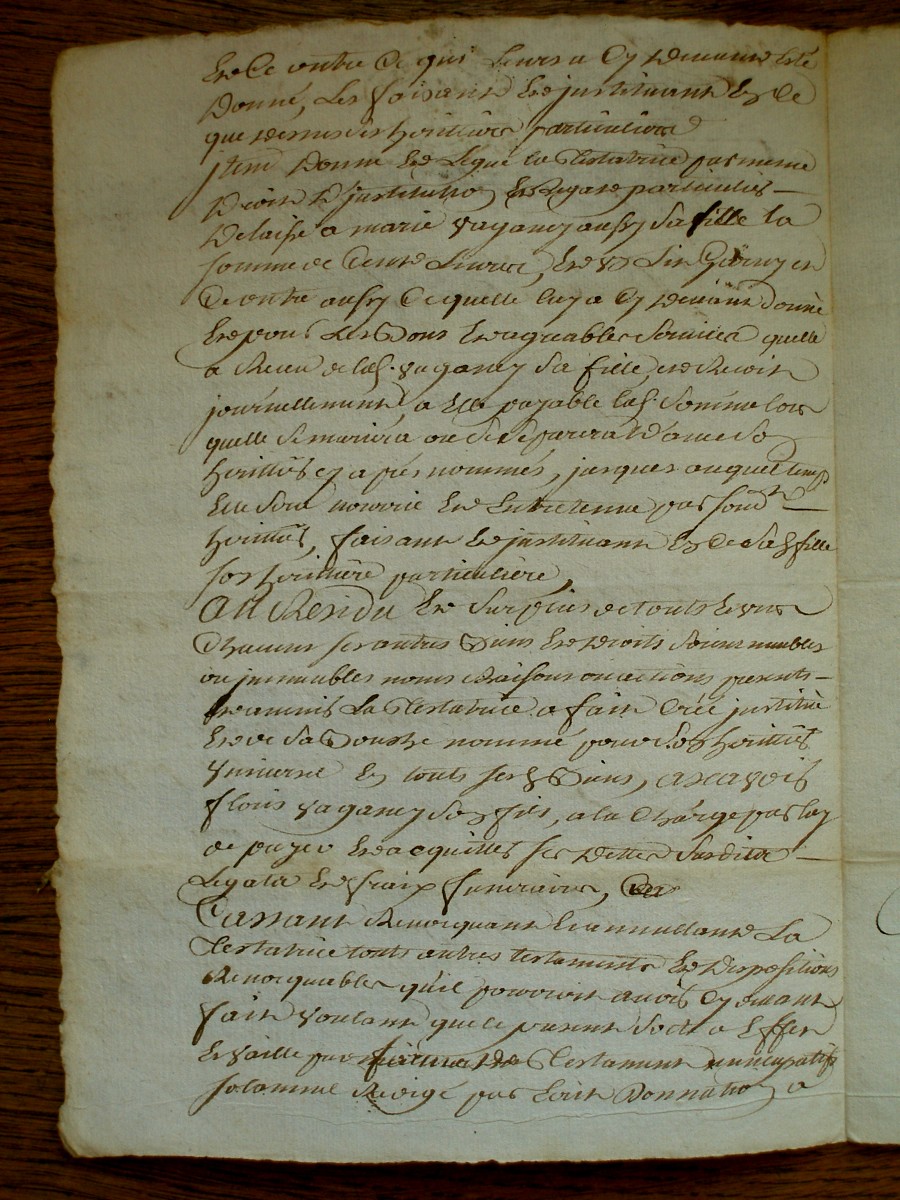 Et ce outre ce qui leurs a cy devant esté
Donné, Les faisant et jnstituant en ce
que dessus ses heritiers particuliers
jtem Donne et Legue la Testatrice par meme
Droit D'jnstitution et Legat particulier
Delaisse a marie vaganey aussy sa fille la
somme de Cent Livres, et un Lin garny et
Ce outre aussy ce quelle luy a cy devant donné
et pour les bons et agreables services quelle
a Receu de lad. vaganey sa fille et Recoit
journellement, a Elle payable lad. somme lors
quelle se mariera ou se separera D'avec son
heritier cy apres nommés, jusques auquel temps
Elle sera nourrie et Entretenue par sond
heritier, faisant et jnstituant en ce sad fille
son heritiere particuliere
Au Residu et surplus de touts et uns
Chacuns ses autres biens et Droits soient meubles
ou jmmeubles noms Raisons ou actions presents
et avenir La Testatrice a fait créé jnstitué
et de sa bouche nommé pour son heritier
universel en touts sesd biens, ascavoir
Floris vaganey son fils, a la charge par luy
de payer et acquitter ses Dettes susdits
Legats et fraix funeraires,
Cassant Revocquant et annullant La
Testatrice touts autres testaments et Dispositions
Revocquables qu'il pourroit avoir cy devant
fait voulant que le present sorte a Effet
et vaille par Testament nuncupatif
solamnel Redigé par Ecrit Donnation a